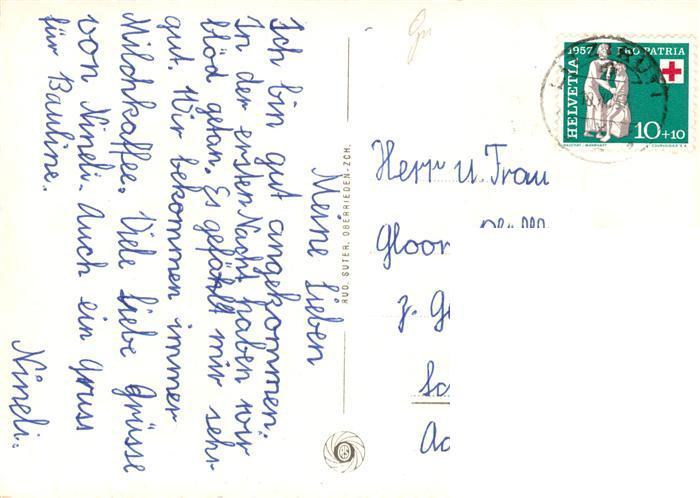 Meine Lieben
Ich bin gut angekommen.
In der ersten Nacht haben wir
blöd getan. Es gefällt mir sehr
gut. Wir bekommen immer
Milchkaffee. Viele Liebe Grüsse
von Nineli. Auch ein Gruss
für Bauline.
Nineli.
RUD. SUTER, OBERRIEDEN-ZCH.
1957 PRO PATRIA
HELVETIA
10+10
COURVOISIER S.A.
Herr u. Frau
Gloor
z. G